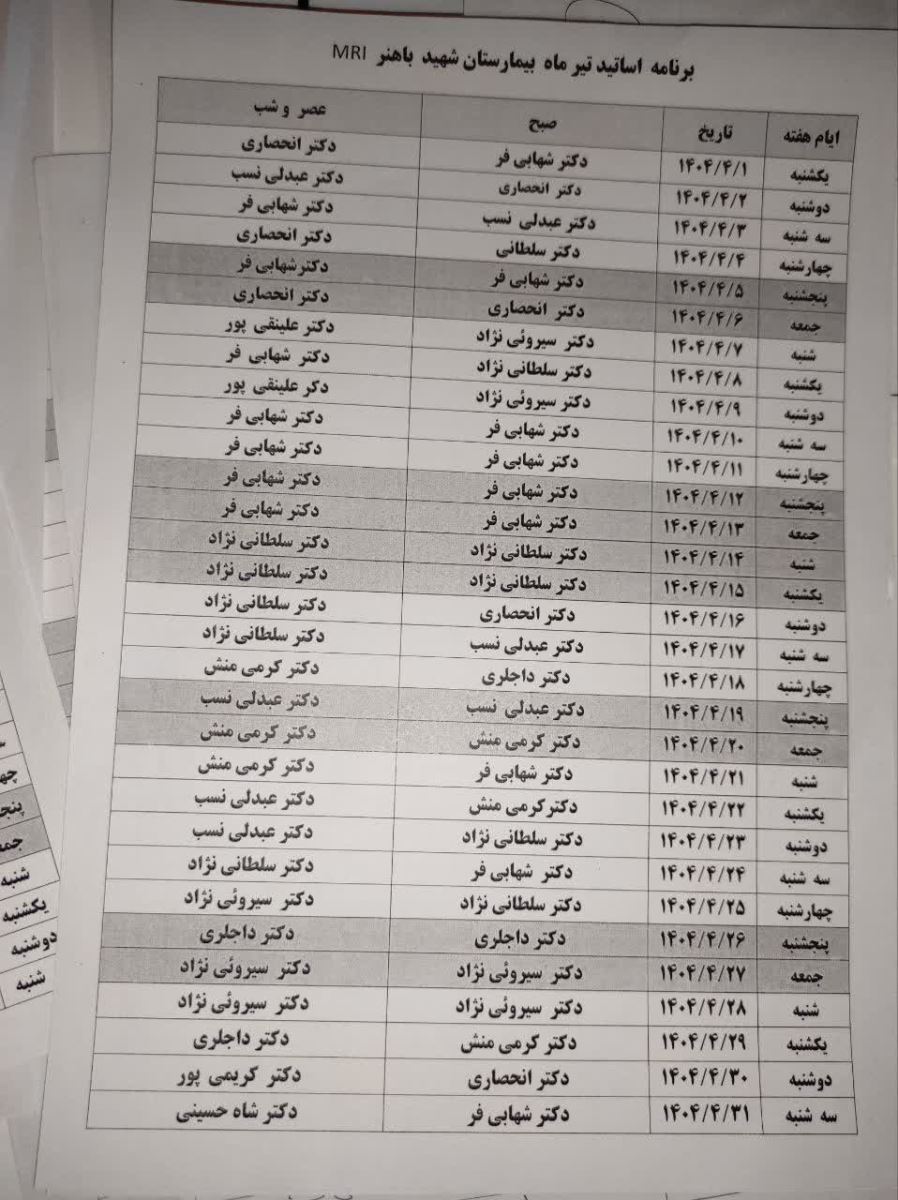 برنامه اساتید تیر ماه بیمارستان شهید باهنر MRI
ایام هفته تاریخ صبح عصر و شب
یکشنبه ۱۴۰۴/۴/۱ دکتر شهابی فر دکتر انحصاری
دوشنبه ۱۴۰۴/۴/۲ دکتر انحصاری دکتر عبدلی نسب
سه شنبه ۱۴۰۴/۴/۳ دکتر عبدلی نسب دکتر شهابی فر
چهارشنبه ۱۴۰۴/۴/۴ دکتر سلطانی دکتر انحصاری
پنجشنبه ۱۴۰۴/۴/۵ دکتر شهابی فر دکترشهابی فر
جمعه ۱۴۰۴/۴/۶ دکتر انحصاری دکتر انحصاری
شنبه ۱۴۰۴/۴/۷ دکتر سیروئی نژاد دکتر علینقی پور
یکشنبه ۱۴۰۴/۴/۸ دکتر سلطانی نژاد دکتر شهابی فر
دوشنبه ۱۴۰۴/۴/۹ دکتر سیروئی نژاد دکر علینقی پور
سه شنبه ۱۴۰۴/۴/۱۰ دکتر شهابی فر دکتر شهابی فر
چهارشنبه ۱۴۰۴/۴/۱۱ دکتر شهابی فر دکتر شهابی فر
پنجشنبه ۱۴۰۴/۴/۱۲ دکتر شهابی فر دکتر شهابی فر
جمعه ۱۴۰۴/۴/۱۳ دکتر شهابی فر دکتر شهابی فر
شنبه ۱۴۰۴/۴/۱۴ دکتر سلطانی نژاد دکتر سلطانی نژاد
یکشنبه ۱۴۰۴/۴/۱۵ دکتر سلطانی نژاد دکتر سلطانی نژاد
دوشنبه ۱۴۰۴/۴/۱۶ دکتر انحصاری دکتر سلطانی نژاد
سه شنبه ۱۴۰۴/۴/۱۷ دکتر عبدلی نسب دکتر سلطانی نژاد
چهارشنبه ۱۴۰۴/۴/۱۸ دکتر داجلری دکتر کرمی منش
پنجشنبه ۱۴۰۴/۴/۱۹ دکتر عبدلی نسب دکتر عبدلی نسب
جمعه ۱۴۰۴/۴/۲۰ دکتر کرمی منش دکتر کرمی منش
شنبه ۱۴۰۴/۴/۲۱ دکتر شهابی فر دکتر کرمی منش
یکشنبه ۱۴۰۴/۴/۲۲ دکترکرمی منش دکتر عبدلی نسب
دوشنبه ۱۴۰۴/۴/۲۳ دکتر سلطانی نژاد دکتر عبدلی نسب
سه شنبه ۱۴۰۴/۴/۲۴ دکتر شهابی فر دکتر سلطانی نژاد
چهارشنبه ۱۴۰۴/۴/۲۵ دکتر سلطانی نژاد دکتر سیروئی نژاد
پنجشنبه ۱۴۰۴/۴/۲۶ دکتر داجلری دکتر داجلری
جمعه ۱۴۰۴/۴/۲۷ دکتر سیروئی نژاد دکتر سیروئی نژاد
شنبه ۱۴۰۴/۴/۲۸ دکتر سیروئی نژاد دکتر سیروئی نژاد
یکشنبه ۱۴۰۴/۴/۲۹ دکتر کرمی منش دکتر داجلری
دوشنبه ۱۴۰۴/۴/۳۰ دکتر انحصاری دکتر کریمی پور
سه شنبه ۱۴۰۴/۴/۳۱ دکتر شهابی فر دکتر شاه حسینی
شنبه
یکشنبه
دوشنبه
شنبه